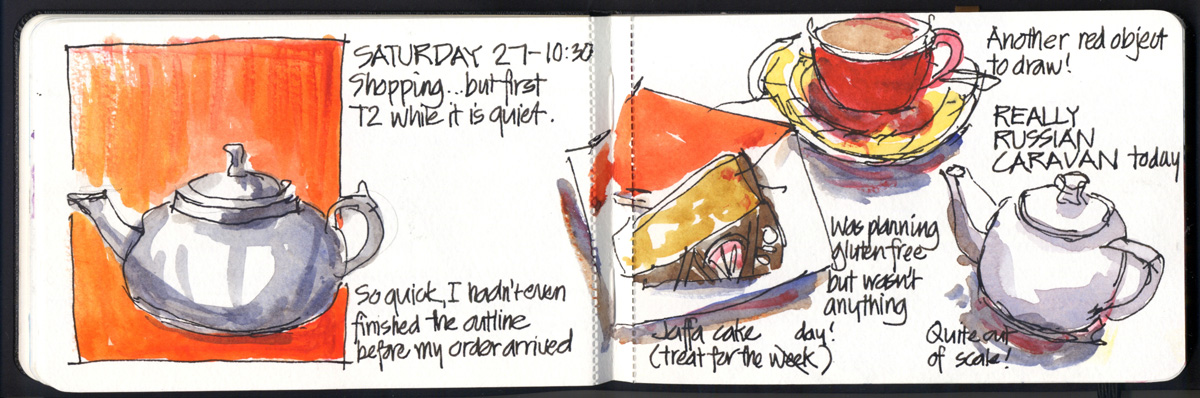 SATURDAY 27-10:30
Shopping...but first
T2 while it is quiet.
So quick, I hadn't even
finished the outline
before my order arrived
Another red object
to draw!
REALLY
RUSSIAN
CARAVAN today
Was planning
gluten free
but wasn't
anything
Jaffa cake day!
(treat for the week)
Quite out
of scale!